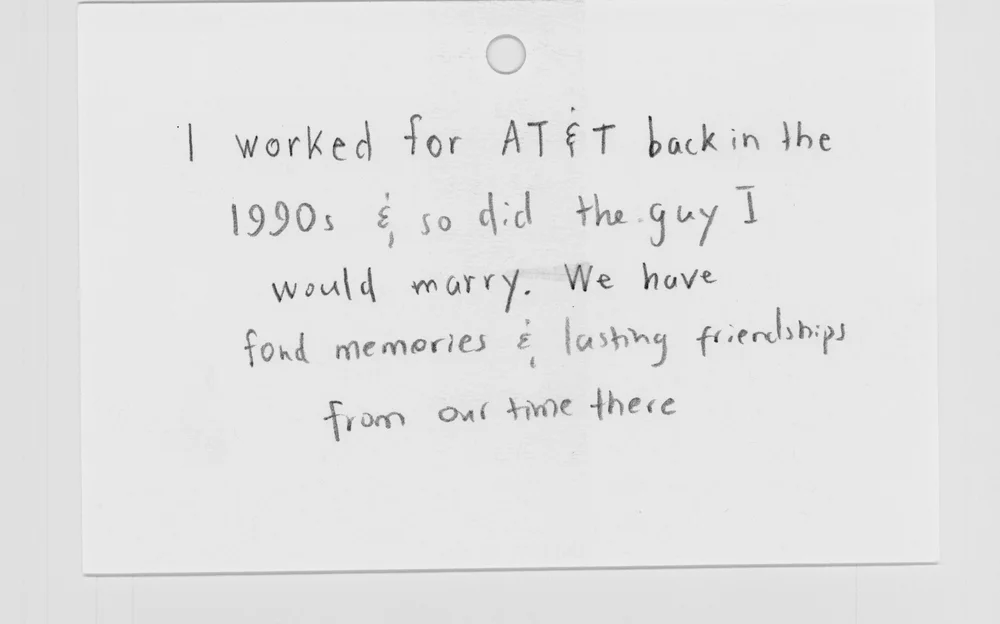 I worked for AT&T back in the
1990s & so did the guy I
would marry. We have
fond memories & lasting friendships
from our time there